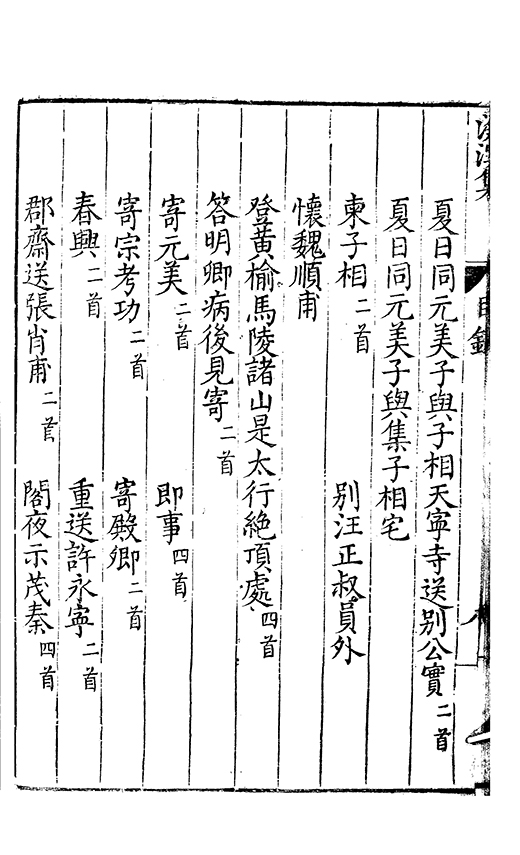 夏日同元美子與子相天寧寺送别公實二首
夏日同元美子與集子相宅
柬子相二首 别汪正叔員外
懷魏順甫
登黃榆馬陵諸山是太行絶頂處四首
答明卿病後見寄二首
寄元美二首 即事四首
寄宗考功二首 寄殿卿二首
春興二首 重送許永寧二首
郡齋送張肖甫二首 閣夜示茂秦四首